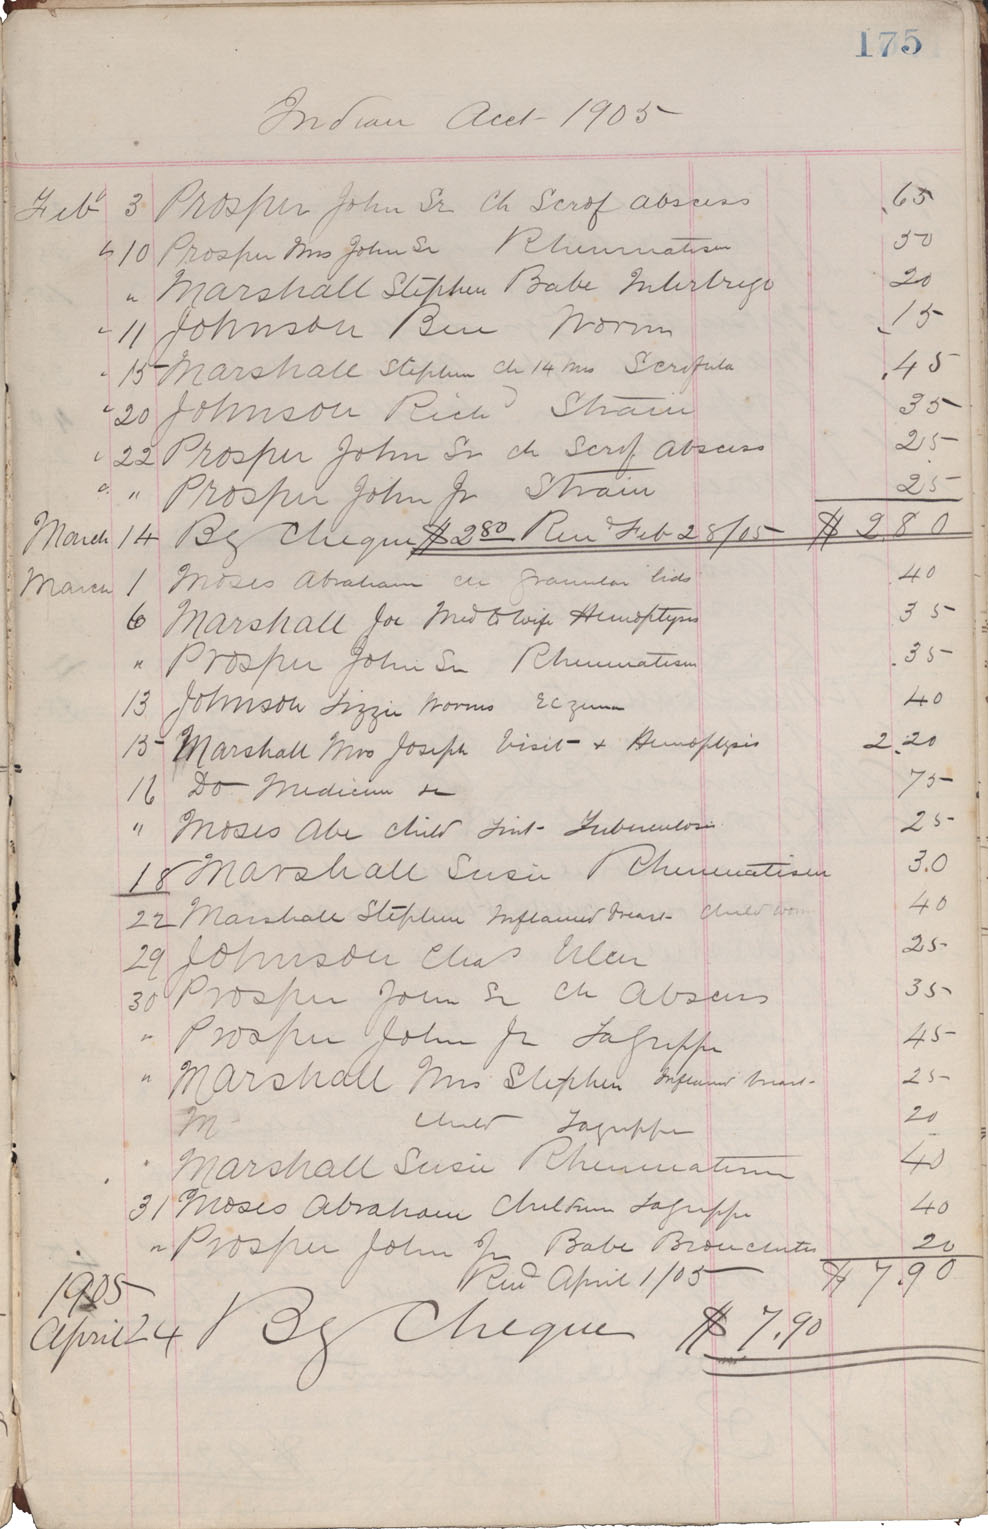 175
Indian Acct 1905
Feb 3 Prosper John Sr Ch Scrof abscess .65
" 10 Prosper Mrs John Sr Rheumatism 50
" Marshall Stephen Babe Intertrigo 20
" 11 Johnson Ben Worms .15
" 15 Marshall Stephen ch 14 mos Scrofula .45
" 20 Johnson Richd Strain 35
" 22 Prosper John Sr ch Scrof abscess 25
" " Prosper John Jr Strain 25
March 14 By Cheque $2 80 Rend Feb 28/05 $ 2 80
March 1 Moses Abraham ch granular lids 40
6 Marshall Joe Med to wife Hemoptysis 35
" Prosper John Sr Rheumatism .35
13 Johnson Lizzie Worms Eczema 40
15 Marshall Mrs Joseph Visit + Hemoptysis 2.20
16 Do Medicine 75
" Moses Abe child Tuberculosis 25
18 Marshall Susie Rheumatism 3.0
22 Marshall Stephen Inflamed breast child worms 40
29 Johnson Chas Ulcer 25
30 Prosper John Sr Ch Abscess 35
" Prosper John Jr LaGrippe 45
" Marshall Mrs Stephen Inflamed breast 25
M child Lagrippe 20
" Marshall Susie Rheumatism 40
31 Moses Abraham Children Lagrippe 40
" Prosper John Jr Babe Bronchitis 20
Rend April 1/05 $ 7.90
1905
April 24 By Cheque $ 7.90